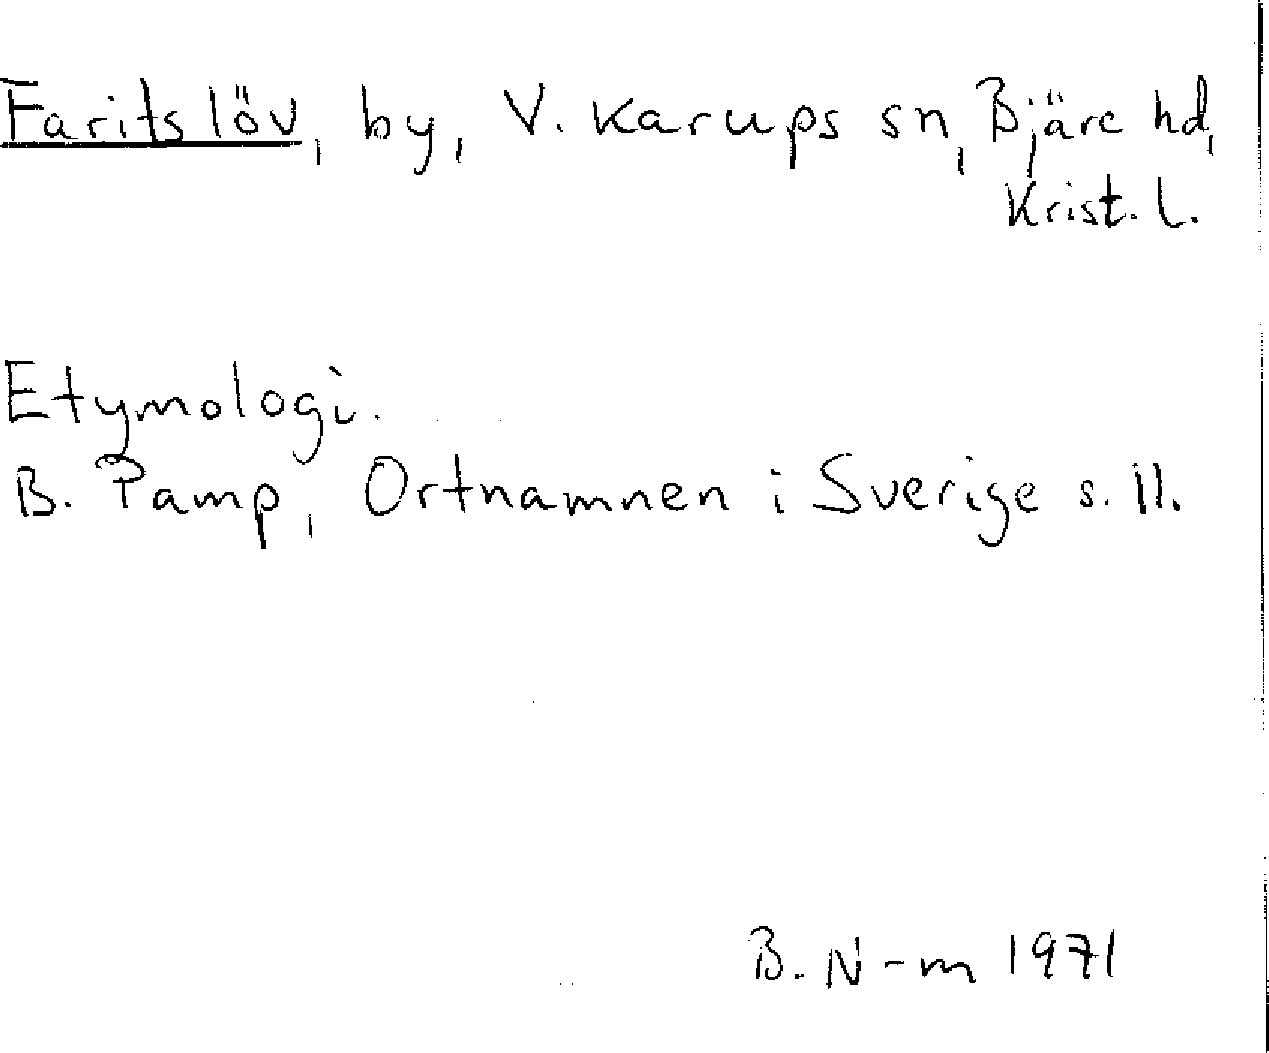 Faritslöv, by, V. Karups sn, Bjäre hd,
Krist. l.
Etymologi.
B. Pamp, Ortnamnen i Sverige s. 11.
B. N-m 1971